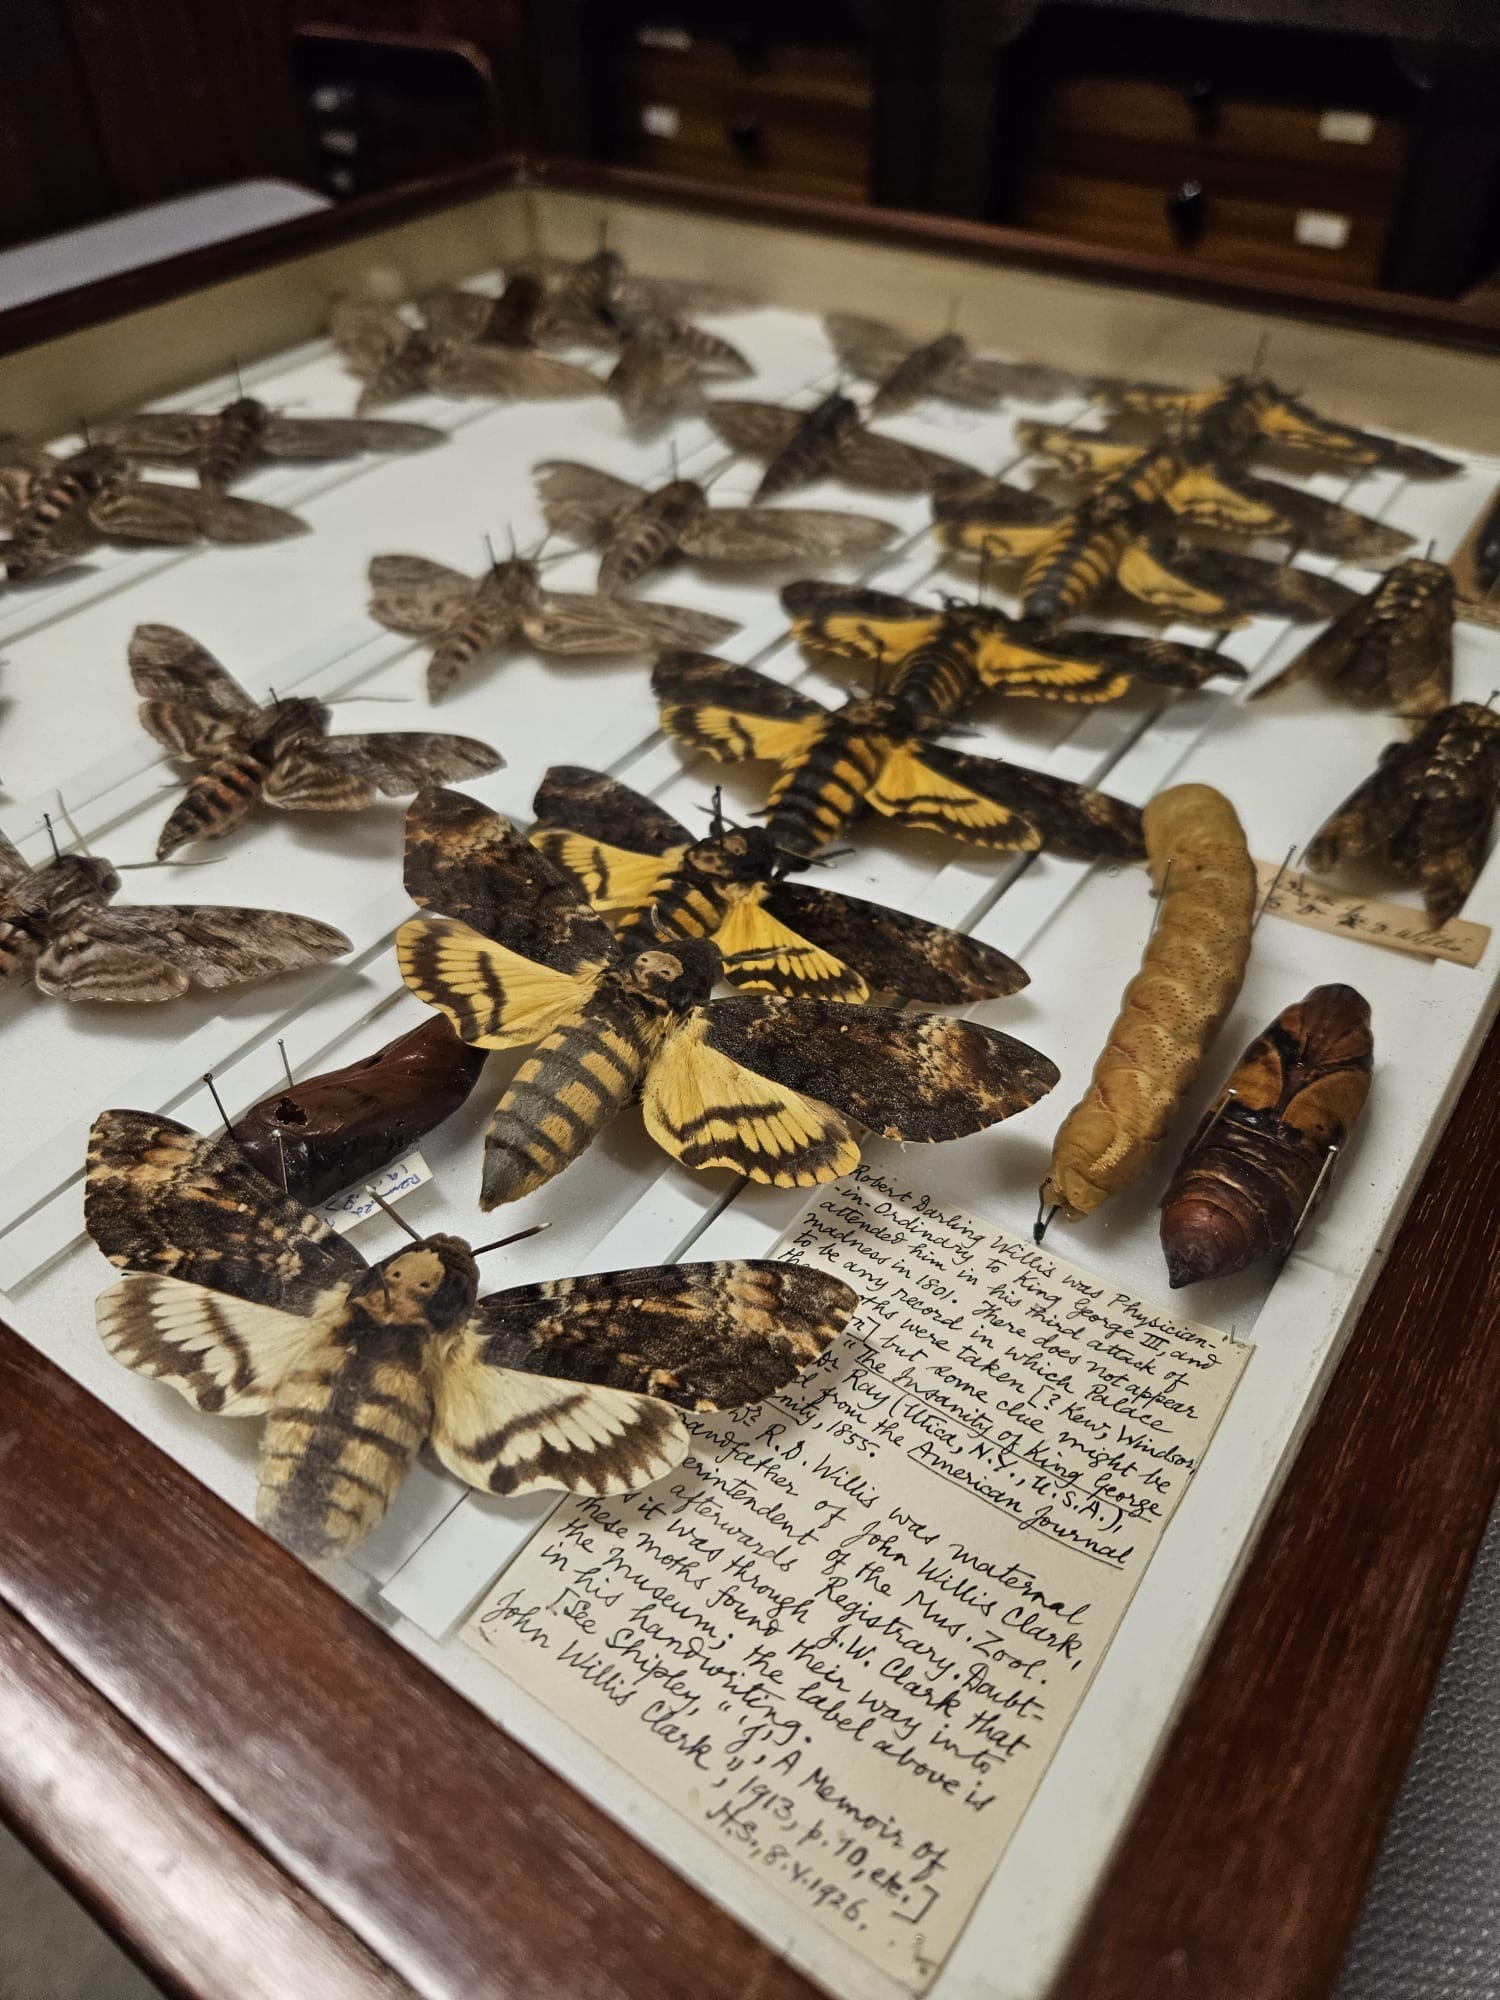 Robert Darling Willis was Physician-
-in-Ordinary to King George III, and
attended him in his third attack of
madness in 1801. There does not appear
to be any record in which Palace
were taken [? Kew, Windsor,
but some clue might be
"The Insanity of King George
Dr Ray (Utica, N.Y., U.S.A.),
from the American Journal
1855.
Dr R. D. Willis was maternal
of John Willis Clark,
of the Mus. Zool.
afterwards Registrary. Doubt-
it was through J.W. Clark that
these moths found their way into
the Museum; the label above is
in his handwriting.
[See Shipley, "'J', A Memoir of
John Willis Clark", 1913, p. 70, etc.]
H.S., 8.V.1926.
Willis